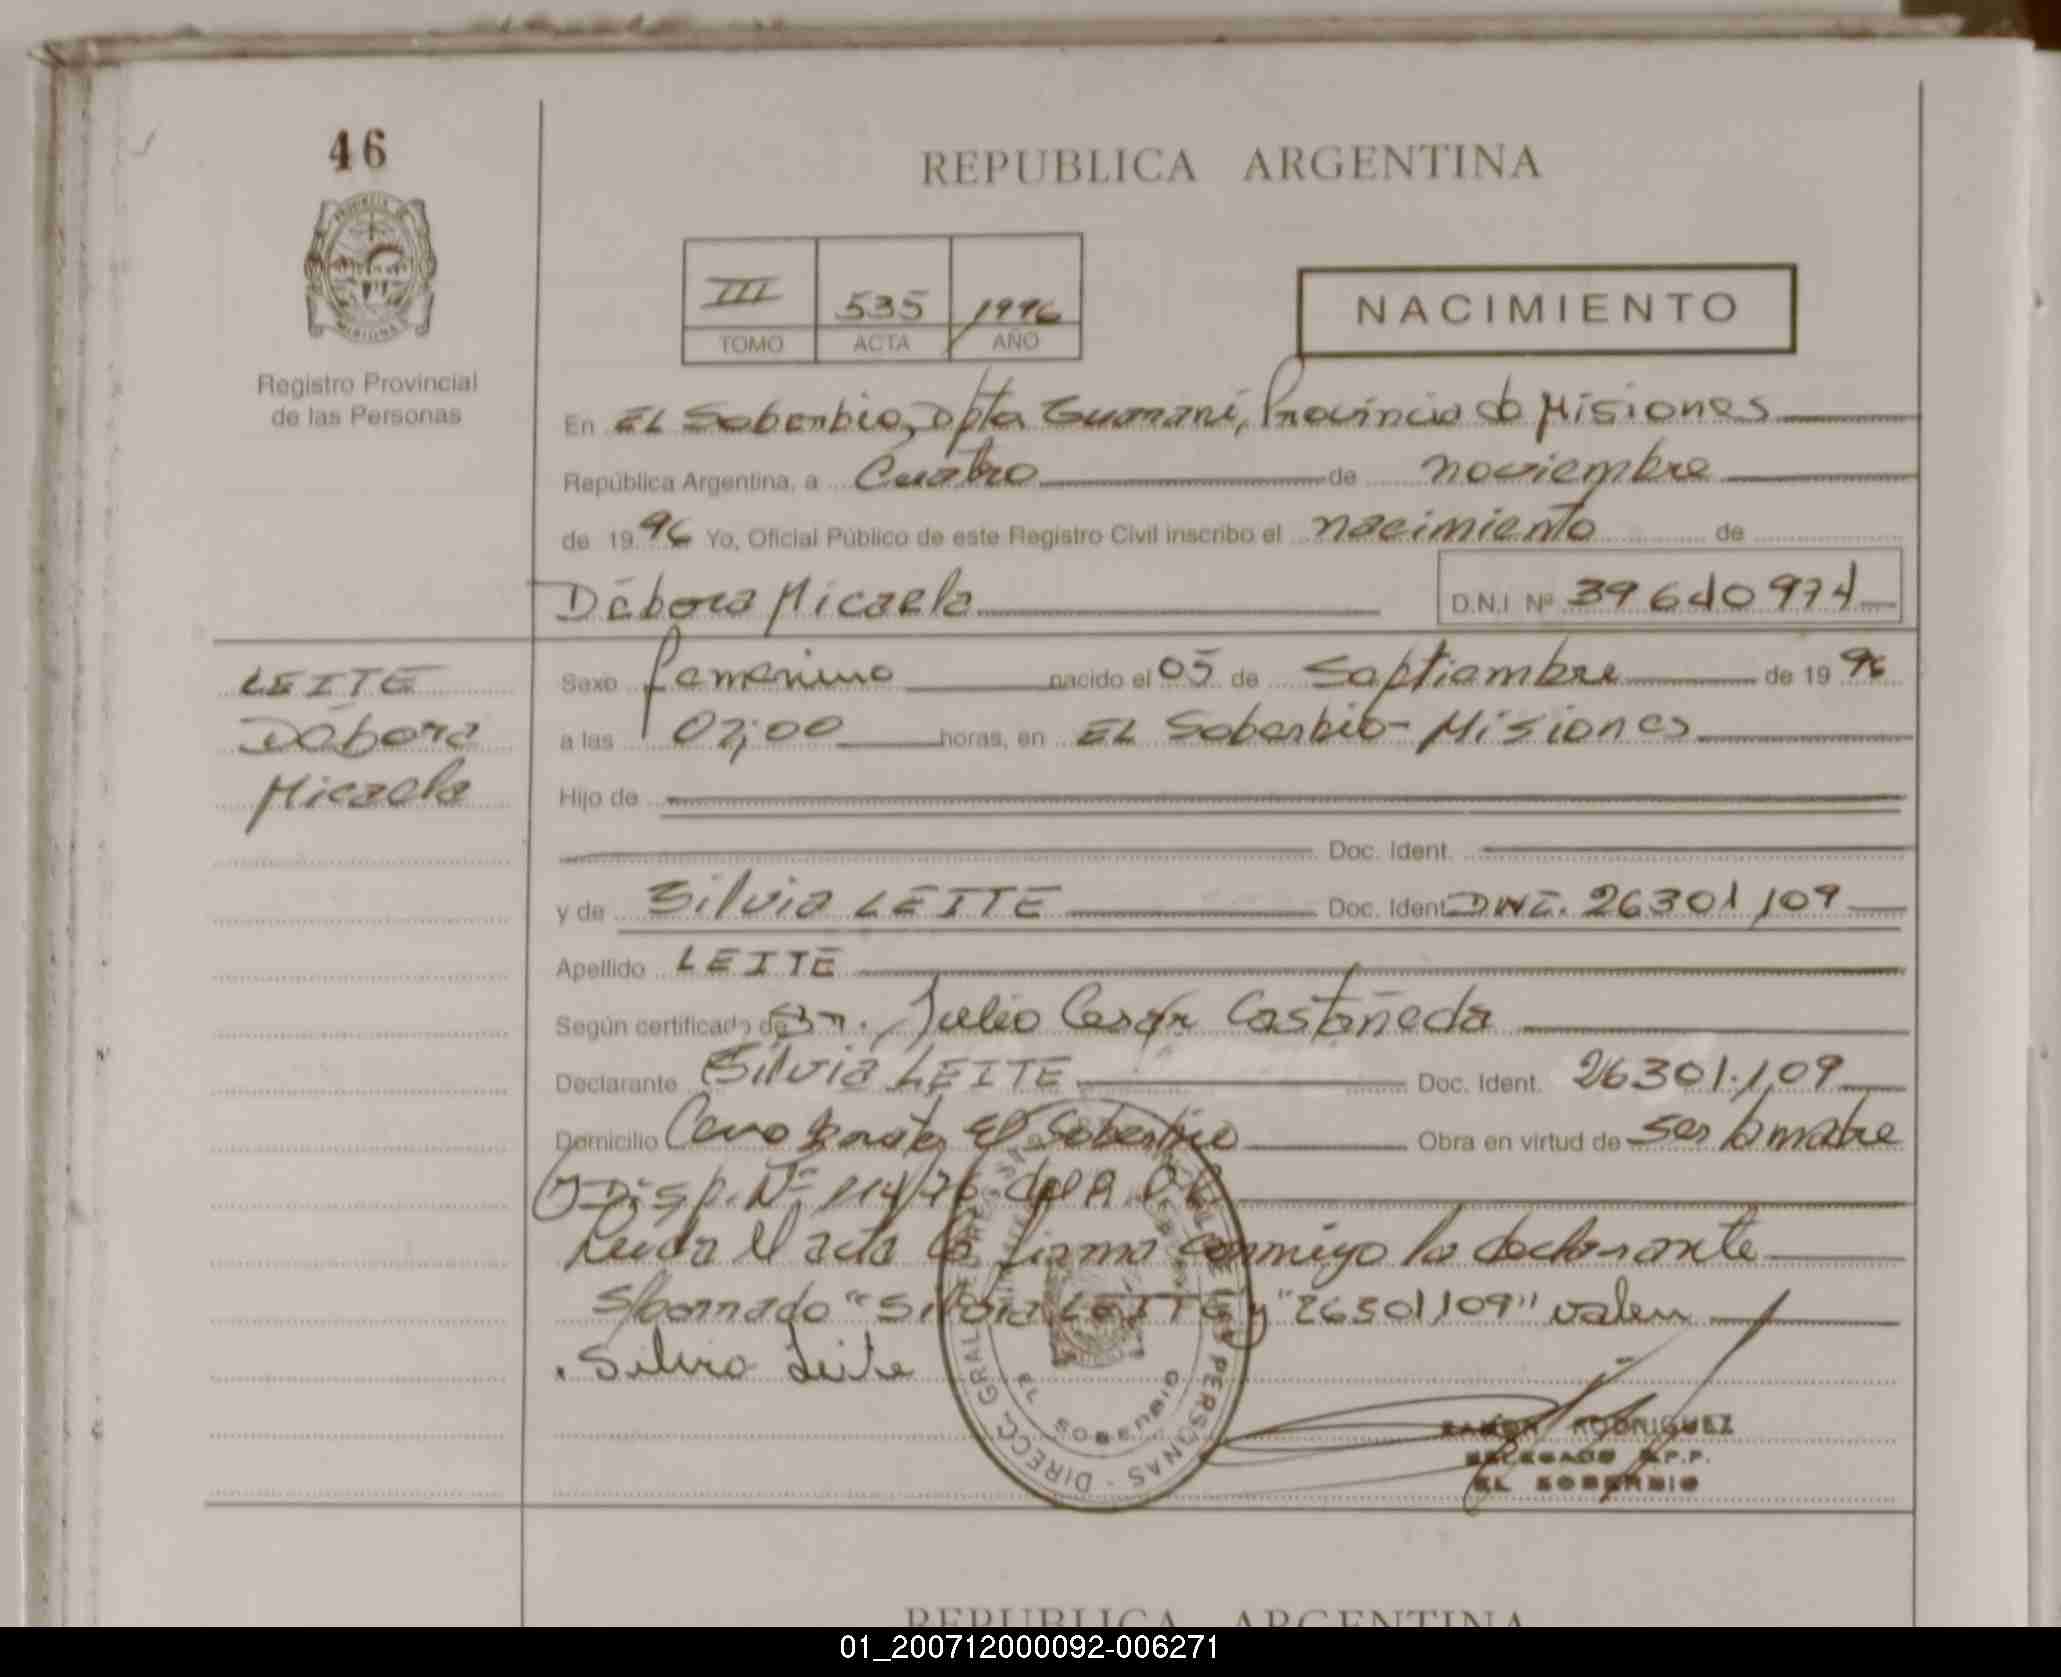 46
REPUBLICA ARGENTINA
III 535 1996
TOMO ACTA AÑO
NACIMIENTO
Registro Provincial
de las Personas
En EL Soberbio, Dpto Guaraní, Provincia de Misiones
República Argentina, a Cuatro de noviembre
de 1996 Yo, Oficial Público de este Registro Civil inscribo el nacimiento de
Débora Micaela D.N.I Nº 39640974
LEITE
Débora
Micaela
Sexo femenino nacido el 05 de Septiembre de 1996
a las 02,00 horas, en EL Soberbio - Misiones
Hijo de
Doc. Ident.
y de Silvia LEITE Doc. Ident. DNI. 26301109
Apellido LEITE
Según certificado de Dr. Julio Cesar Castañeda
Declarante Silvia LEITE Doc. Ident. 26301.109
Domicilio El Soberbio Obra en virtud de ser la madre
y Disp. Nº 114/76 del
Leida el acta la firma conmigo la declarante
S/borrado "Silvia LEITE y "26301109" valen
Silvia Leite
EL SOBERBIO
RAMON RODRIGUEZ
DELEGADO R.P.P.
EL SOBERBIO
REPUBLICA ARGENTINA
01_200712000092-006271